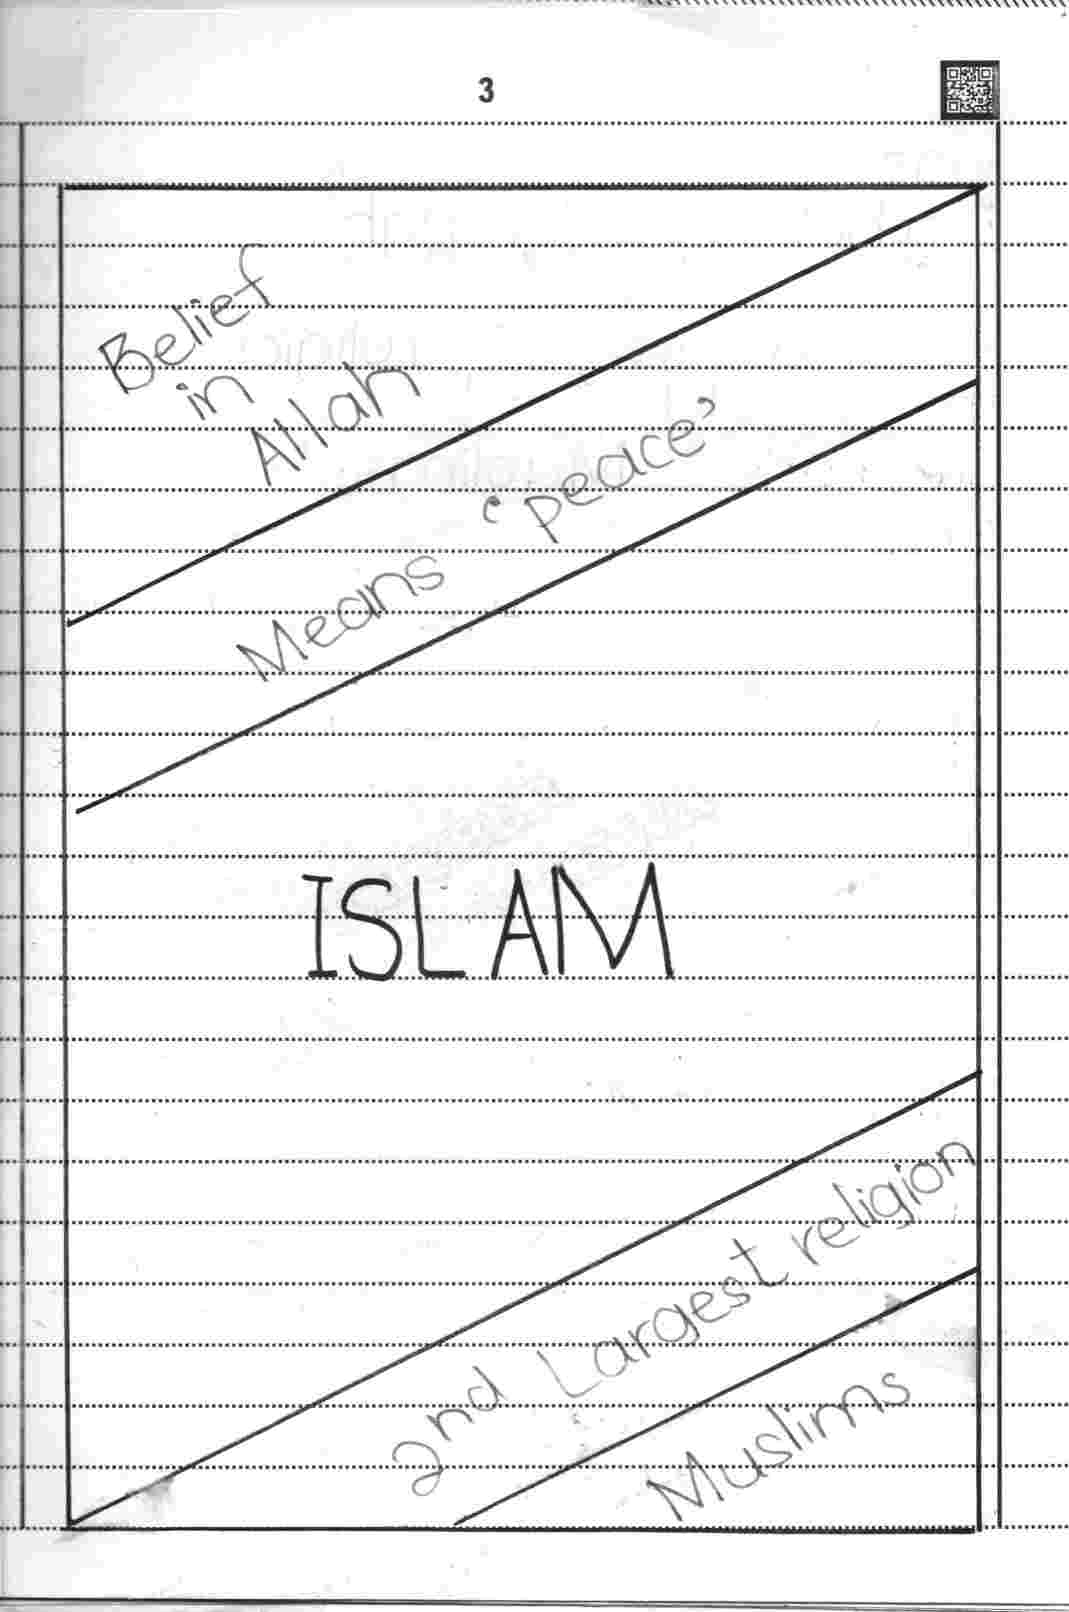 3
Belief
in
Allah
Means 'peace'
ISLAM
2nd Largest religion
Muslims